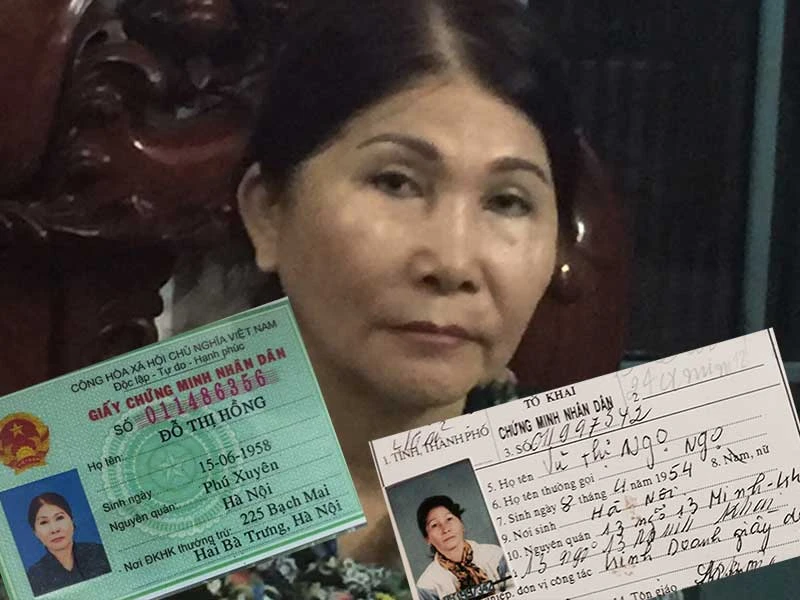 CỘNG HÒA XÃ HỘI CHỦ NGHĨA VIỆT NAM
Độc lập - Tự do - Hạnh phúc
GIẤY CHỨNG MINH NHÂN DÂN
SỐ 011486356
Họ tên: ĐỖ THỊ HỒNG
Sinh ngày 15-06-1958
Nguyên quán: Phú Xuyên
Hà Nội
Nơi ĐKHK thường trú: 225 Bạch Mai
Hai Bà Trưng, Hà Nội
TỜ KHAI
CHỨNG MINH NHÂN DÂN
1. TỈNH, THÀNH PHỐ
3. SỐ 011997342
5. Họ tên Vũ Thị Ngọ
6. Họ tên thường gọi Ngọ
7. Sinh ngày 8 tháng 4 năm 1954 8. Nam, nữ
9. Nơi sinh Hà Nội
10. Nguyên quán 13 ngõ 13
13 ngõ 13
đơn vị công tác Kinh Doanh giầy
14. Tôn giáo